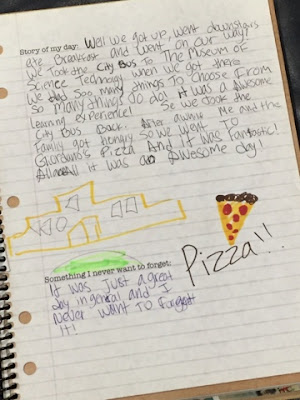 Story of my day: Well we got up, went downstairs
ate Breakfast and went on our way?
We Took the City Bus To The Museum of
Science Technology when we got there
we had Soo many things To Choose From
So many things do do! it was a Awesome
Learning experience! So we took the
City Bus Back. After awhile Me and the
Family got hungry So we went To
Giordano's Pizza And it was Fantastic!
it was an Awesome day!
Pizza!!
Something I never want to forget:
It was Just a great
day in general and I
Never Want To Forget
It!